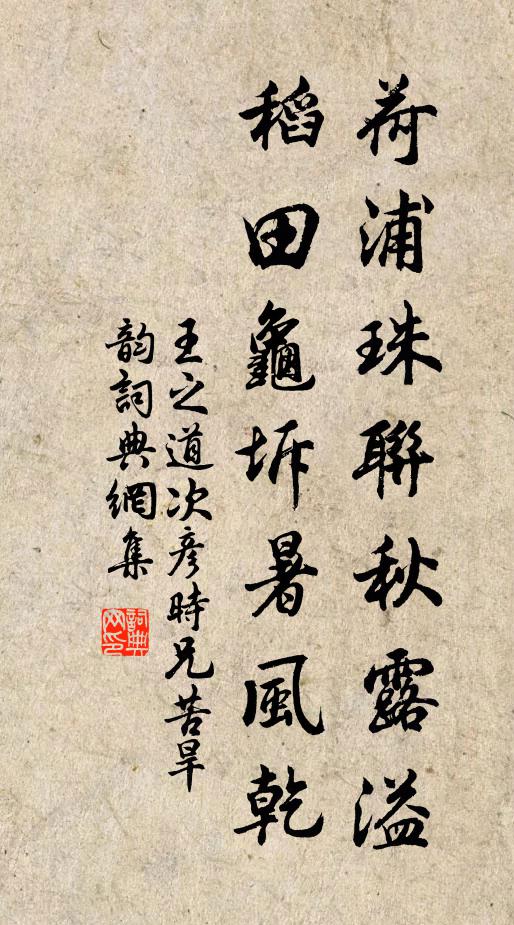 荷浦珠聯秋露溢
稻田龜坼暑風乾
王之道次彥時兄苦旱
韵詞典網集
詞典网印